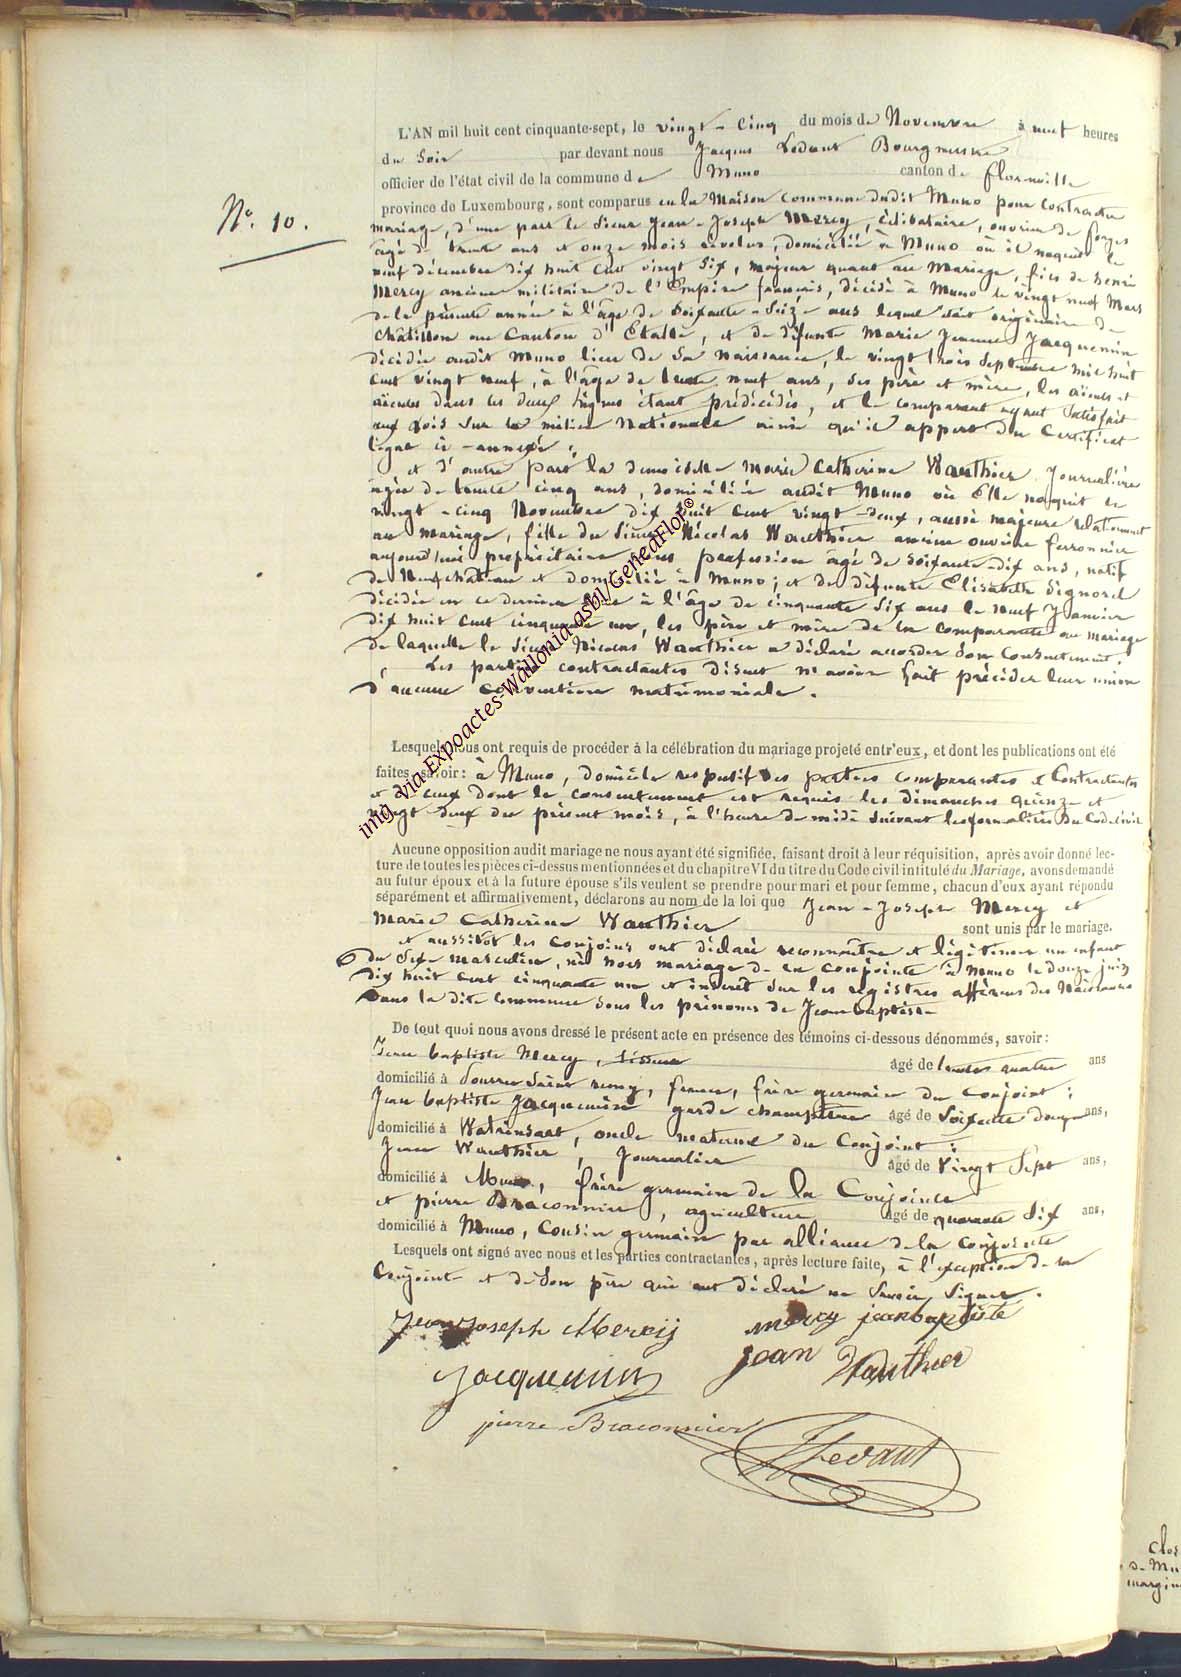 N°. 10.
L'AN mil huit cent cinquante-sept, le vingt-cinq du mois de Novembre à neuf heures
du Soir par devant nous Jacques Ledant Bourgmestre
officier de l'état civil de la commune de Muno canton de florenville
province de Luxembourg, sont comparus en la Maison Commune dudit Muno pour Contracter
mariage, d'une part le Sieur Jean-Joseph Mercy, Célibataire, ouvrier de forges
âgé de trente ans et onze mois révolus, domicilié à Muno où il naquit le
neuf décembre dix huit cent vingt Six, majeur quant au Mariage, fils de henri
Mercy ancien militaire de l'Empire français, décédé à Muno le vingt neuf Mars
de la présente année à l'âge de Soixante-Seize ans lequel était originaire de
Châtillon au Canton d'Etalle, et de défunte Marie Jeanne Jacquemin
décédée audit Muno lieu de Sa Naissance, le vingt trois Septembre mil huit
cent vingt neuf, à l'âge de trente neuf ans, Ses père et mère, les aïeuls et
aïeules dans les deux lignes étant prédécédés, et le comparant ayant Satisfait
aux lois Sur la milice Nationale ainsi qu'il appert du Certificat
ligne ci-annexé;
et d'autre part la demoiselle Marie Catherine Wauthier Journalière
âgée de trente cinq ans, domiciliée audit Muno où Elle naquit le
vingt-cinq Novembre dix huit cent vingt-deux, aussi majeure relativement
au mariage, fille du Sieur Nicolas Wauthier ancien ouvrier ferronnier
aujourd'hui propriétaire Sans profession âgé de Soixante-dix ans, natif
de Neufchâteau et domicilié à Muno; et de défunte Elisabeth Signorel
décédée en ce dernier lieu à l'âge de cinquante Six ans le neuf Janvier
dix huit cent cinquante un, les père et mère de la comparante au mariage
de laquelle le Sieur Nicolas Wauthier a déclaré accorder Son Consentement.
Les parties contractantes disent n'avoir fait précéder leur union
d'aucune convention matrimoniale.
Lesquels nous ont requis de procéder à la célébration du mariage projeté entr'eux, et dont les publications ont été
faites, savoir: à Muno, domicile respectif des parties comparantes et Contractantes
et de ceux dont le consentement est requis les dimanches quinze et
vingt deux du présent mois, à l'heure de midi Suivant les formalités du Code civil
Aucune opposition audit mariage ne nous ayant été signifiée, faisant droit à leur réquisition, après avoir donné lec-
ture de toutes les pièces ci-dessus mentionnées et du chapitre VI du titre du Code civil intitulé du Mariage, avons demandé
au futur époux et à la future épouse s'ils veulent se prendre pour mari et pour femme, chacun d'eux ayant répondu
séparément et affirmativement, déclarons au nom de la loi que Jean-Joseph Mercy et
Marie Catherine Wauthier sont unis par le mariage.
et aussitôt les Conjoins ont déclaré reconnaître et légitimer un enfant
du Sexe masculin, né hors mariage de la conjointe à Muno le douze juin
dix huit cent cinquante un et inscrit Sur les registres afférens des Naissances
dans la dite Commune Sous les prénoms de Jean baptiste
De tout quoi nous avons dressé le présent acte en présence des témoins ci-dessous dénommés, savoir:
Jean baptiste Mercy, tisseur âgé de trente quatre ans
domicilié à Saint remy, france, frère germain du Conjoint;
Jean baptiste Jacquemin garde champêtre âgé de Soixante douze ans,
domicilié à Watrinsart, oncle maternel du Conjoint;
Jean Wauthier, Journalier âgé de Vingt Sept ans,
domicilié à Muno, frère germain de la Conjointe
et pierre Braconnier, agriculteur âgé de quarante Six ans,
domicilié à Muno, Cousin germain par alliance de la conjointe
Lesquels ont signé avec nous et les parties contractantes, après lecture faite, à l'exception de la
Conjointe et de Son père qui ont déclaré ne Savoir Signer.
Jean Joseph Mercij mercy jean baptiste
Jacquemin jean Wauthier
pierre Braconnier
J Ledant
img via Expoactes-Wallonia-asbl/GeneaFlor©
Clos
margin